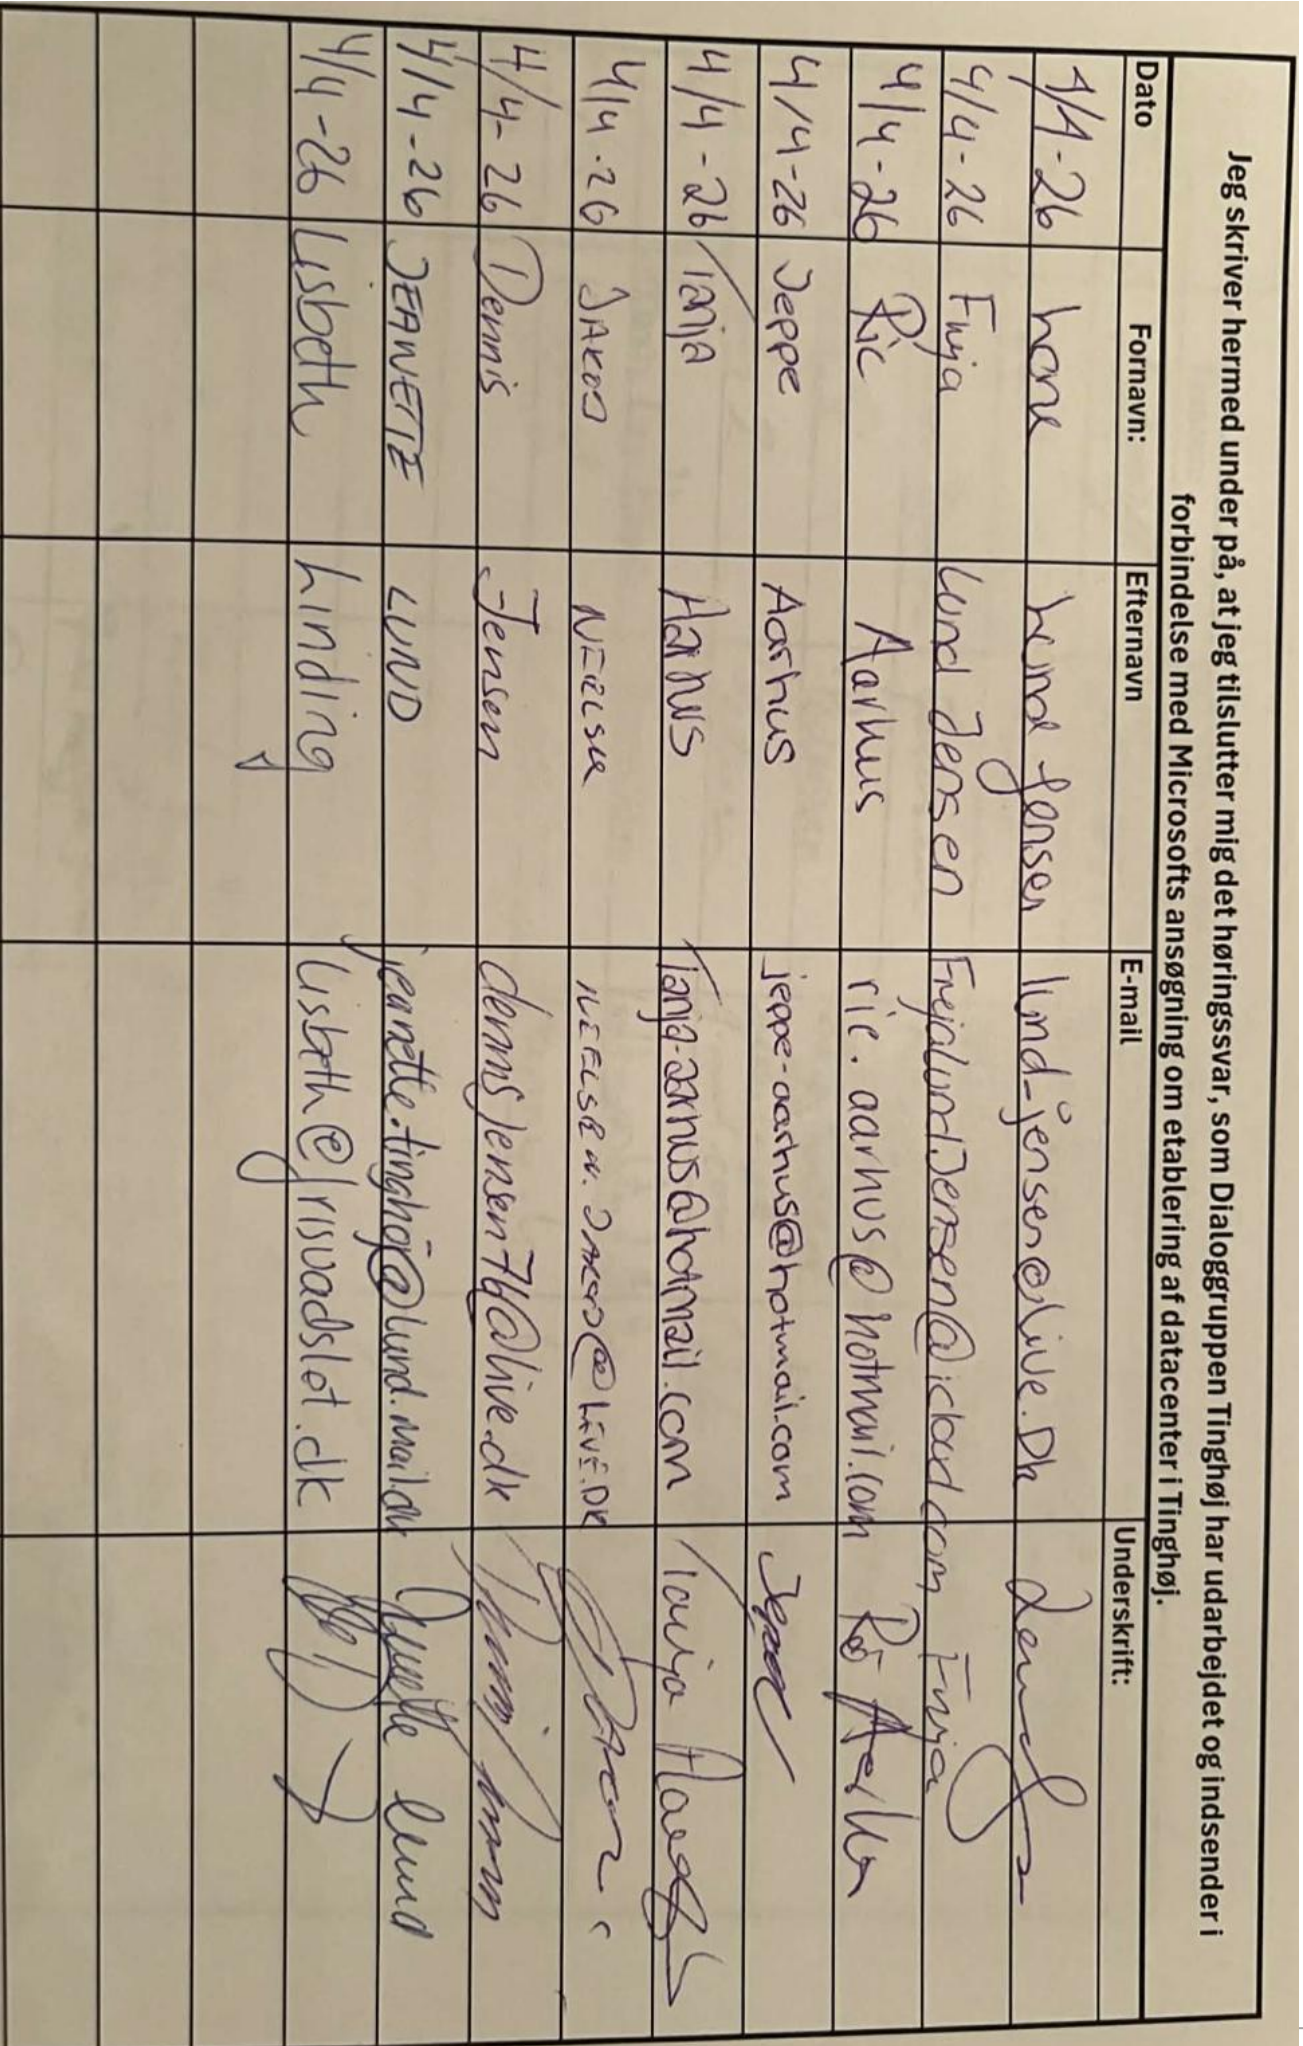 Jeg skriver hermed under på, at jeg tilslutter mig det høringssvar, som Dialoggruppen Tinghøj har udarbejdet og indsender i
forbindelse med Microsofts ansøgning om etablering af datacenter i Tinghøj.
Dato Fornavn: Efternavn E-mail Underskrift:
4/4-26 Lone Lund Jensen lund-jensen@live.Dk
4/4-26 Freja Lund Jensen FrejalundJensen@icloud.com Freja
4/4-26 Ric Aarhus ric.aarhus@hotmail.com Ric
4/4-26 Jeppe Aarhus jeppe-aarhus@hotmail.com Jeppe
4/4-26 Tanja Aarhus Tanja-aarhus@hotmail.com Tanja
4/4-26 JAKOB NIELSEN NIELSEN.JAKOB@LIVE.DK
4/4-26 Dennis Jensen dennisjensen76@live.dk Dennis Jensen
4/4-26 JEANETTE LUND jeanette.tinghøj@lund.mail.dk Jeanette Lund
4/4-26 Lisbeth Linding Lisbeth@risvadslot.dk